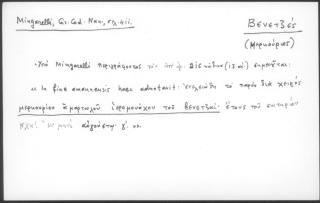 Mingarelli, Gr. Cod. Nan., σελ. 411.
Βενετζᾶς
(Μερκούριος)
Ὑπὸ Mingarelli περιγράφοντος τὸν ὑπ' ἀρ. κώδικα (15 αἰ.) σημειοῦται:
In fine amanuensis haec adnotavit: ἐτελειώθη τὸ παρὸν διὰ χειρὸς
μερκουρίου ἁμαρτωλοῦ ἱερομονάχου τοῦ Βενετζᾶ: ἔτους τοῦ
μηνὶ αὐγούστῳ γ'.